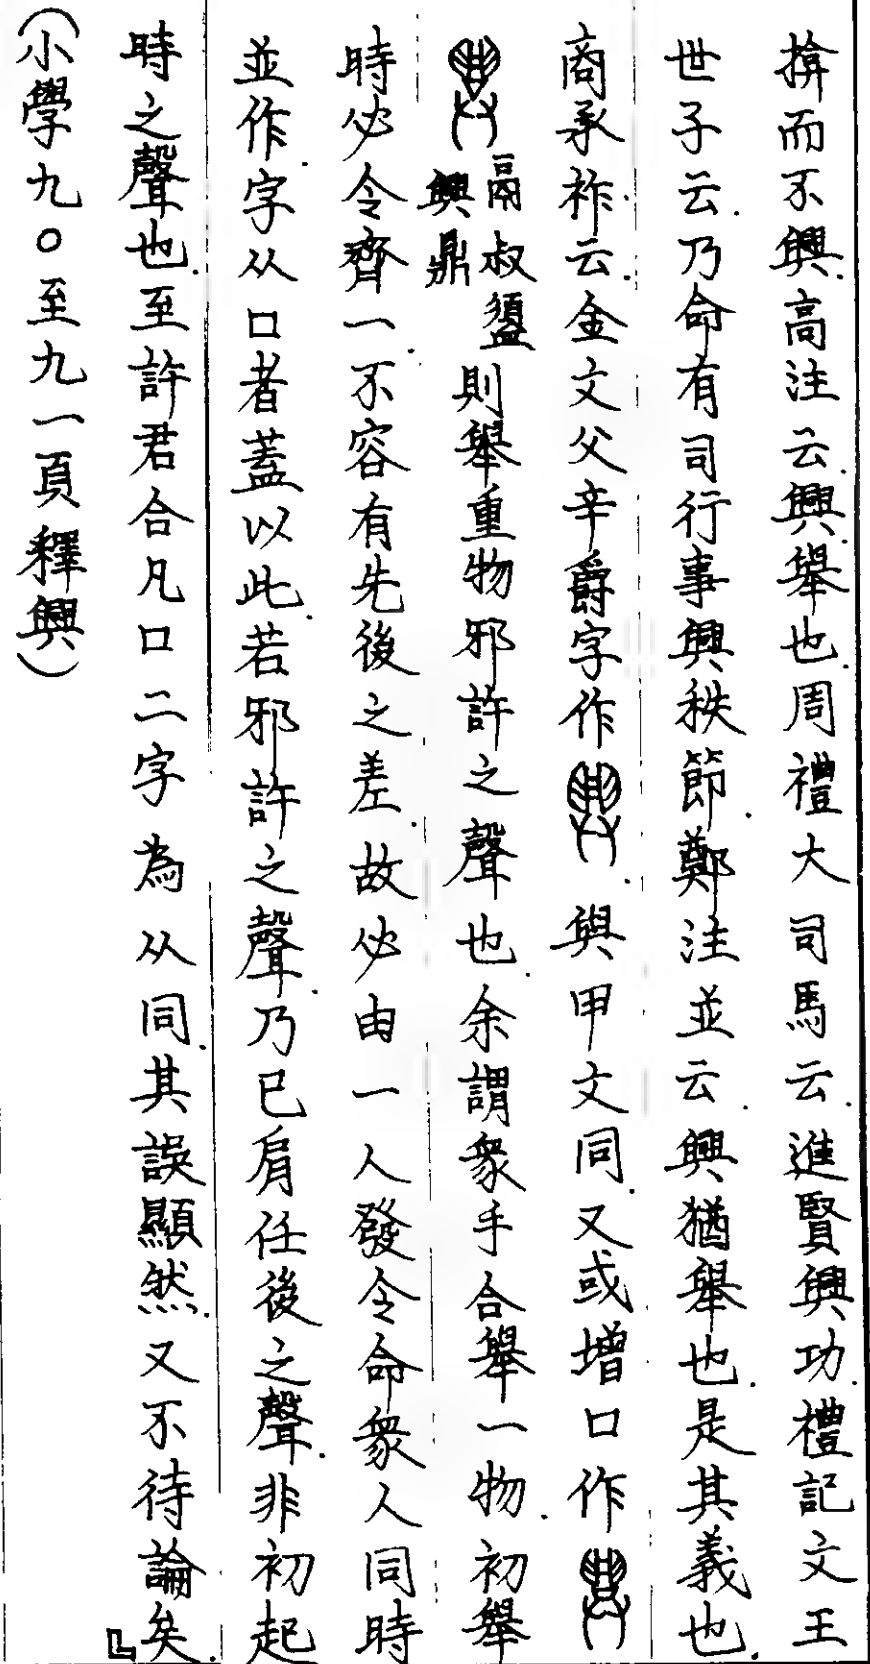 揜而不興.高注云.興舉也.周禮大司馬云.進賢興功.禮記文王
世子云.乃命有司行事興秩節.鄭注並云.興猶舉也.是其義也.
商承祚云.金文父辛爵字作.與甲文同.又或增口作
鬲叔盨興鼎則舉重物邪許之聲也.余謂眾手合舉一物.初舉
時必令齊一.不容有先後之差.故必由一人發令命眾人同時
並作.字从口者蓋以此.若邪許之聲.乃已肩任後之聲.非初起
時之聲也.至許君合凡口二字為从同.其誤顯然.又不待論矣.』
(小學九○至九一頁釋興)